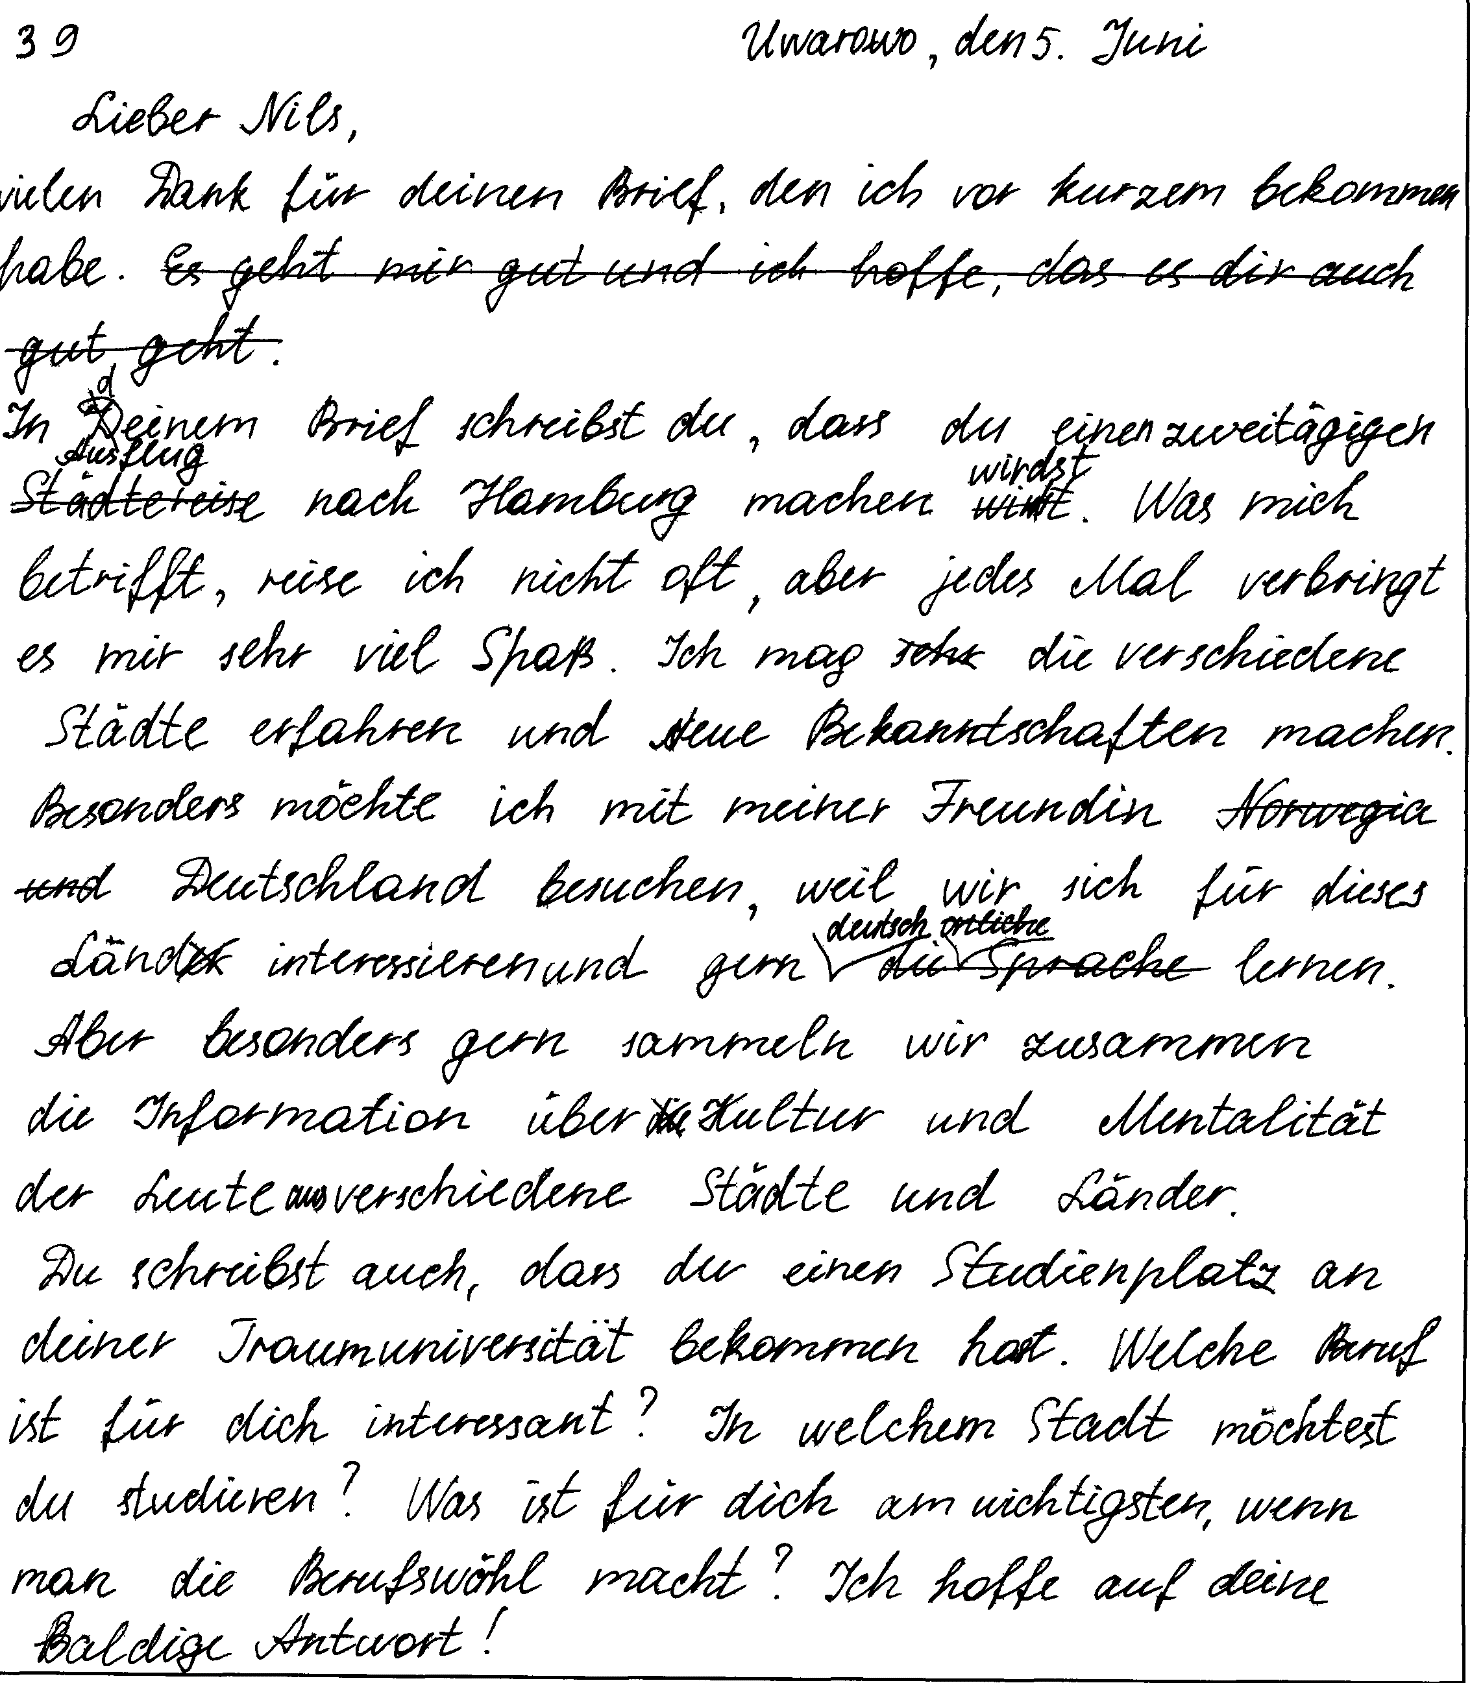 39 Uwarowo, den 5. Juni
Lieber Nils,
vielen Dank für deinen Brief, den ich vor kurzem bekommen
habe. Es geht mir gut und ich hoffe, das es dir auch
gut geht.
In deinem Brief schreibst du, dass du einen zweitägigen
Ausflug wirdst
Städtereise nach Hamburg machen. Was mich
betrifft, reise ich nicht oft, aber jedes Mal verbringt
es mir sehr viel Spaß. Ich mag sehr die verschiedene
Städte erfahren und neue Bekanntschaften machen.
Besonders möchte ich mit meiner Freundin Norwegia
und Deutschland besuchen, weil wir sich für dieses
deutsch örtliche
Länd interessieren und gern die Sprache lernen.
Aber besonders gern sammeln wir zusammen
die Information über die Kultur und Mentalität
der Leute aus verschiedene Städte und Länder.
Du schreibst auch, dass du einen Studienplatz an
deiner Traumuniversität bekommen hast. Welche Beruf
ist für dich interessant? In welchem Stadt möchtest
du studieren? Was ist für dich am wichtigsten, wenn
man die Berufswöhl macht? Ich hoffe auf deine
Baldige Antwort!